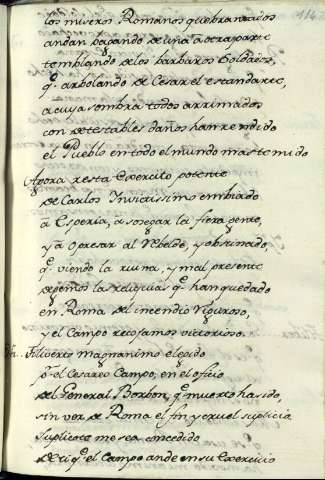 los miseros Romanos quebrantados
andan bagando de una a otra parte
temblando de los barbaros Soldados,
q.e arbolando de Cesar el estandarte,
a cuya sombra todos arrimados
con detestables daños han rendido
el Pueblo en todo el mundo mas temido
Agora resta Exercito potente
de Carlos Invictissimo embiado
a Esperia, a sosegar la fiera gente,
y a opresar al Rebelde, y obstinado,
q.e viendo la ruina, y mal presente
dejemos las reliquias q.e han quedado
en Roma del incendio riguroso,
y el Campo recojamos victorioso.
Filiverto magnanimo elegido
p.r el Cesareo Campo, en el oficio
del General Borbon, q.e muerto ha sido,
sin ver de Roma el fin, y cruel suplicio
Suplicote me sea concedido
de ti q.e el campo ande en su Exercicio
114